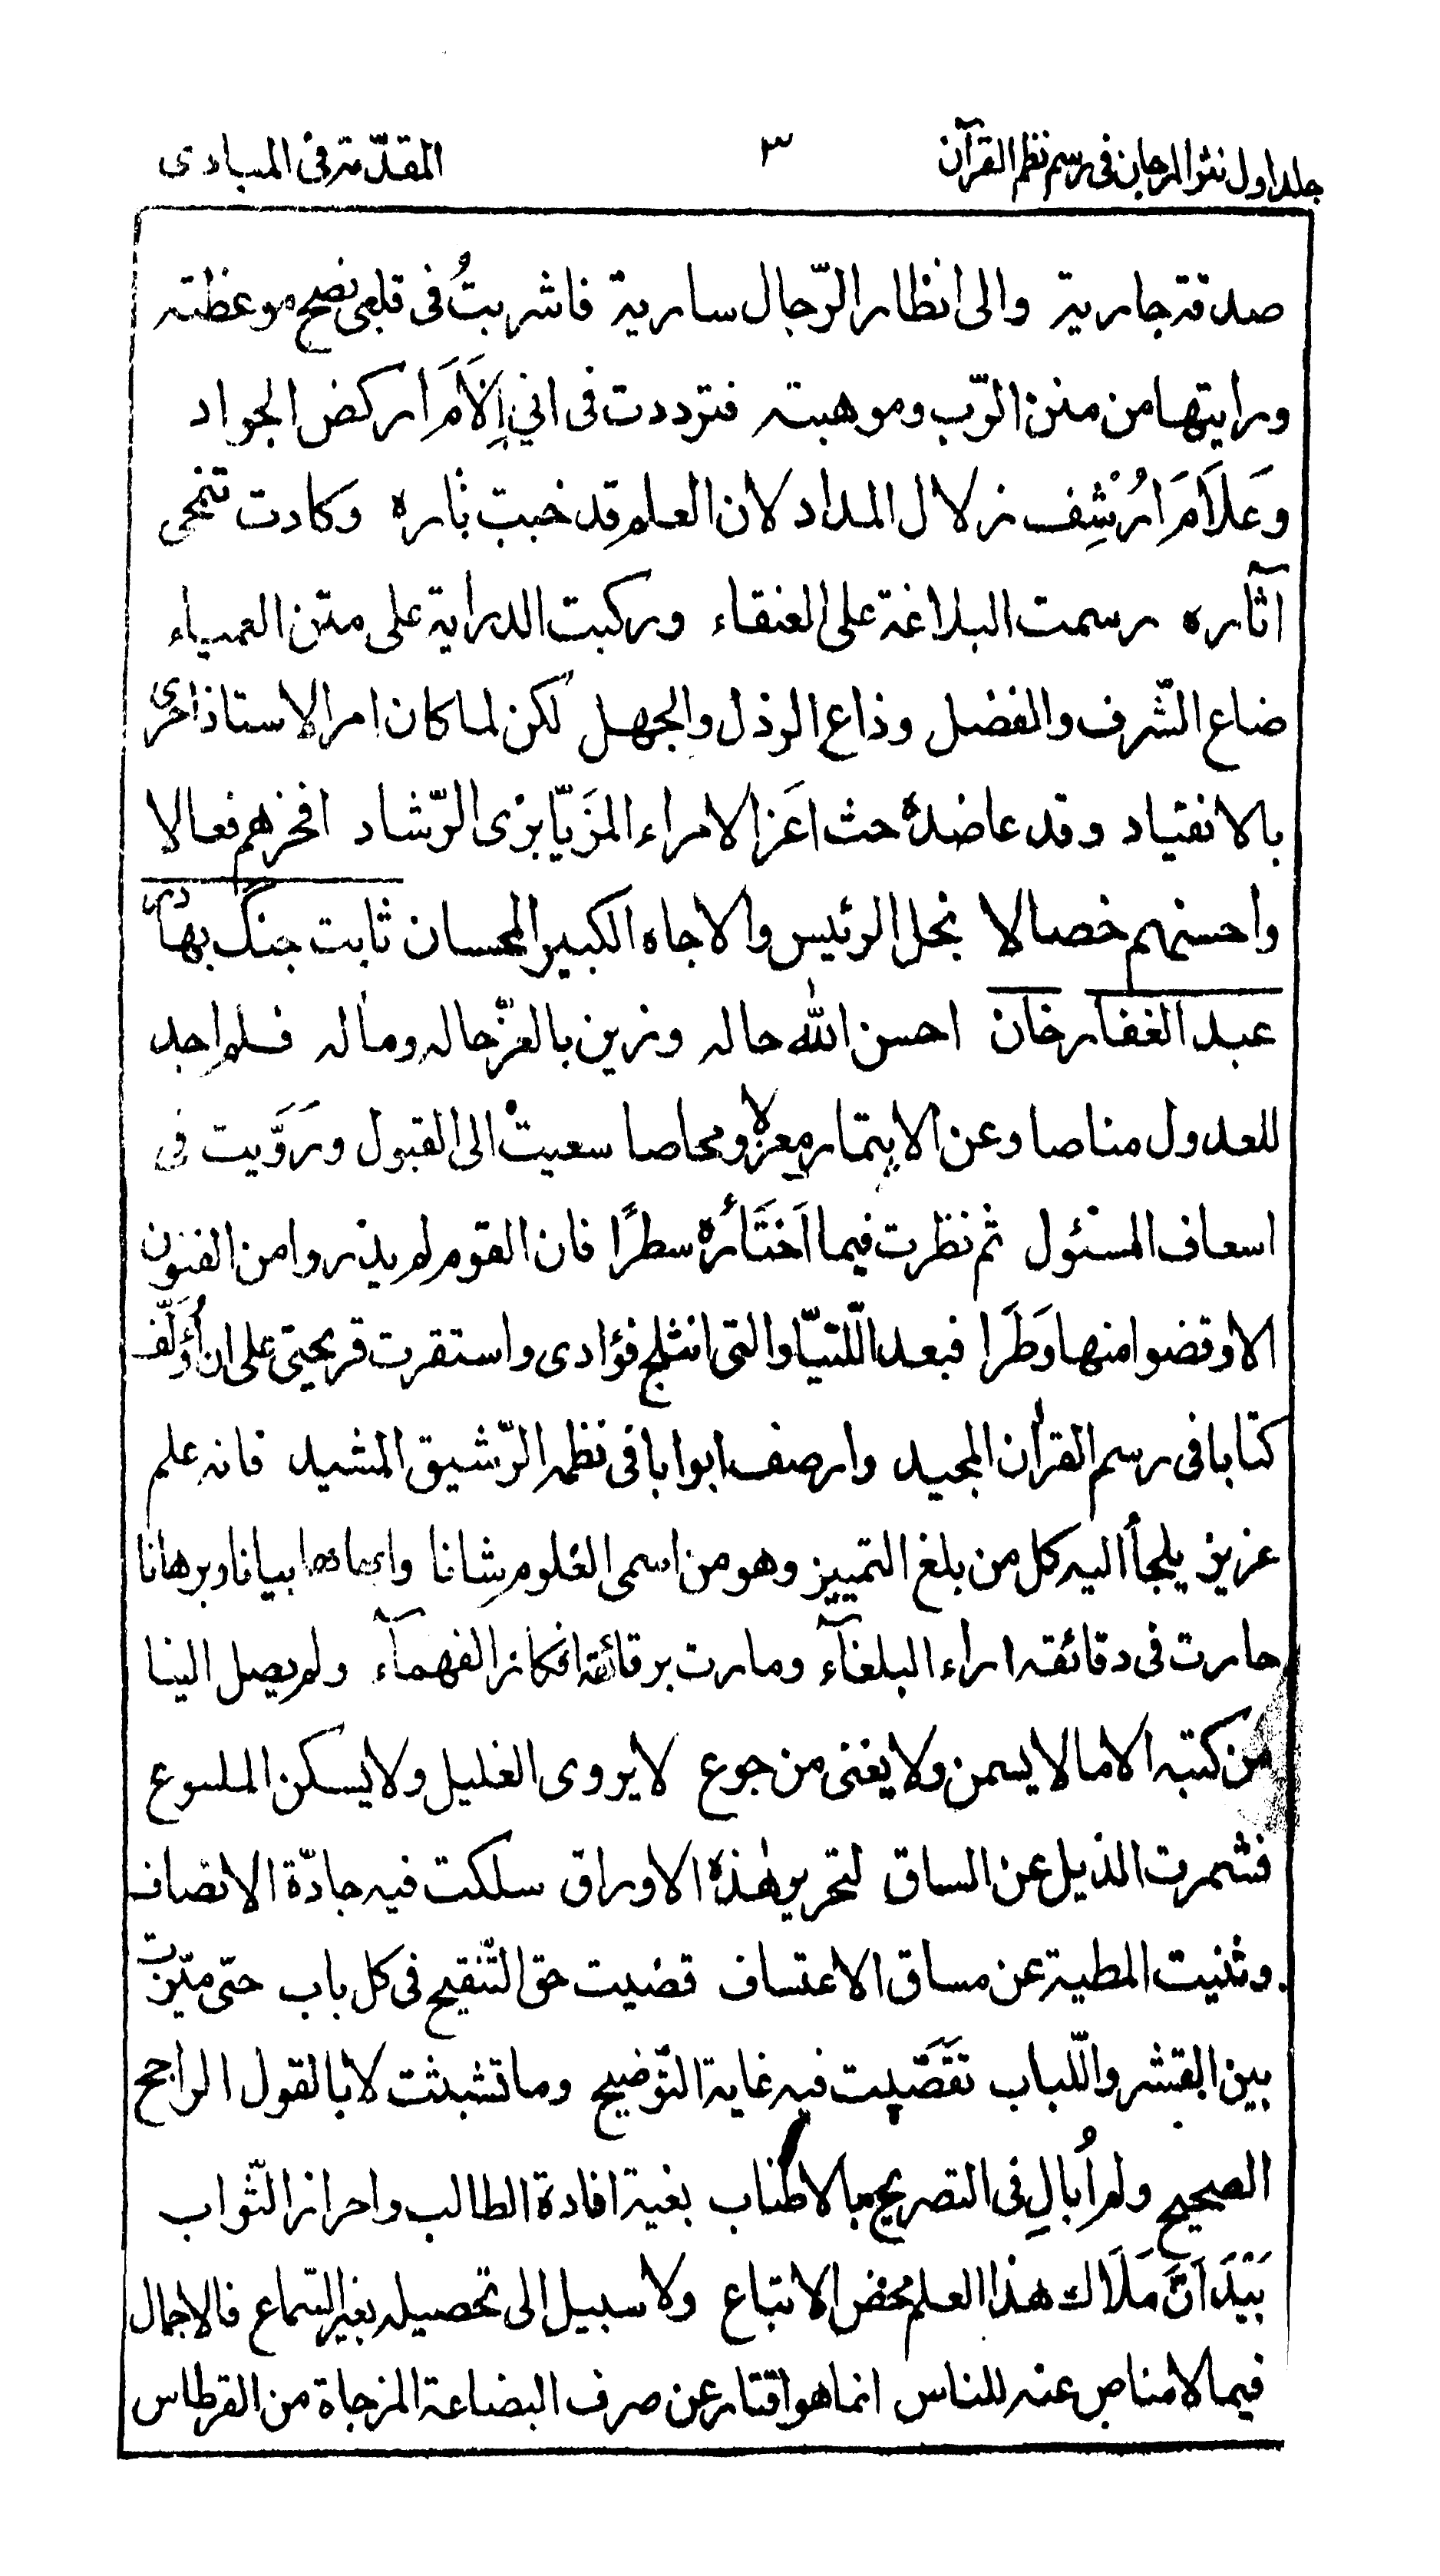 جلد اول نثر المرجان فى رسم نظم القرآن
٣
المقدّمة فى المبادى
صدقة جارية والى انظار الرّجال سارية فاشربتُ فى قلبى نصح موعظته
ورايتها من منن الرّب وموهبته فترددت فى انى إِلَامَ اركض الجواد
وَعَلَامَ اُرْشِف زلال المداد لان العلم قد خبت ناره وكادت تنمحى
آثاره رسمت البلاغة على العنقاء وركبت الدراية على متن العمياء
ضاع الشّرف والفضل وذاع الرذل والجهل لكن لما كان امر الاستاذ احرى
بالانقياد وقد عاضدهُ حث اعَز الامراء المزَيّا بزى الرّشاد افخرهم فعالا
واحسنهم خصالا نجل الرئيس والاجاه الكبير المحسان ثابت جنگ بهادر
عبد الغفار خان احسن الله حاله وزين بالعزّ حاله وماله فلم اجد
للعدول مناصا وعن الايتمار معزلا ومحاصا سعيتْ الى القبول وَرَوَّيت فى
اسعاف المسئول ثم نظرت فيما اَختَارُه سطرًا فان القوم لم يذروا من الفنون
الا وقضوا منها وَطَرَا فبعد اللّتيّا والتى انثلج فؤادى واستقرت قريحتى على ان أُؤَلِّف
كتابا فى رسم القرأن المجيد وارصف ابوابا فى نظمه الرّشيق المشيد فانه علم
عزيز يلجأ اليه كل من بلغ التمييز وهو من اسمى العلوم شانا بيانا وبرهانا
حارت فى دقائقه اراء البلغآء ومارت برقائقه افكار الفهمآء ولم يصل الينا
من كتبه الا ما لا يسمن ولا يغنى من جوع لا يروى الغليل ولا يسكن الملسوع
فشمرت الذيل عن الساق لتحرير هٰذه الاوراق سلكت فيه جادّة الانصاف
وثنيت المطية عن مساق الاعتساف قضيت حق التّنقيح فى كل باب حتى ميّزت
بين القشر واللّباب تقَصَّيت فيه غاية التّوضيح وما تشبثت لا بالقول الراجح
الصحيح ولم اُبالِ فى التصريح بالاطناب بغية افادة الطالب واحراز الثّواب
بَيْدَ اَنَّ مَلَاك هذا العلم محض الاتباع ولا سبيل الى تحصيله بغير السّماع فالاجمال
فيما لا مناص عنه للناس انما هو اقتار عن صرف البضاعة المزجاة من القرطاس